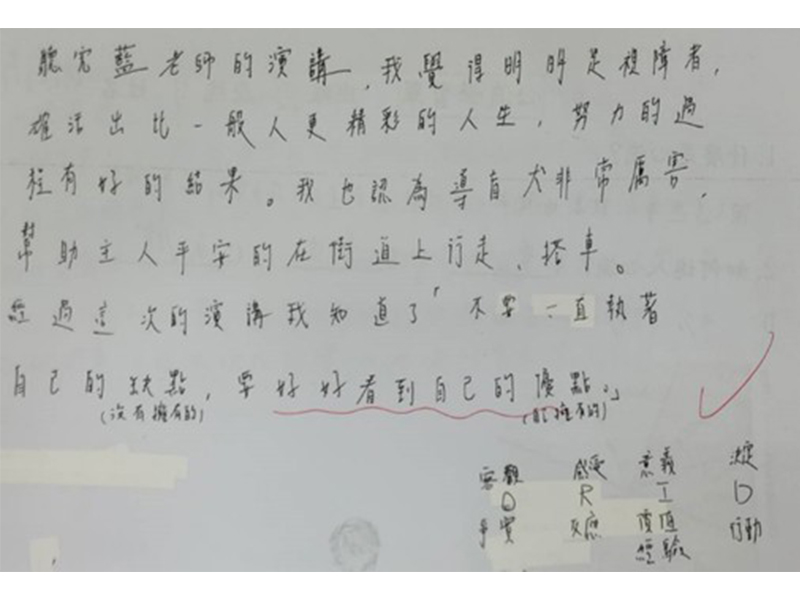 聽完藍老師的演講,我覺得明明是視障者,
確活出比一般人更精彩的人生,努力的過
程有好的結果。我也認為導盲犬非常厲害,
幫助主人平安的在街道上行走、搭車。
經過這次的演講我知道了「不要一直執著
自己的缺點,要好好看到自己的優點。」
(沒有擁有的) (能擁有的)
客觀 感受 意義 決定
O R I D
事實 反應 價值 行動
經驗